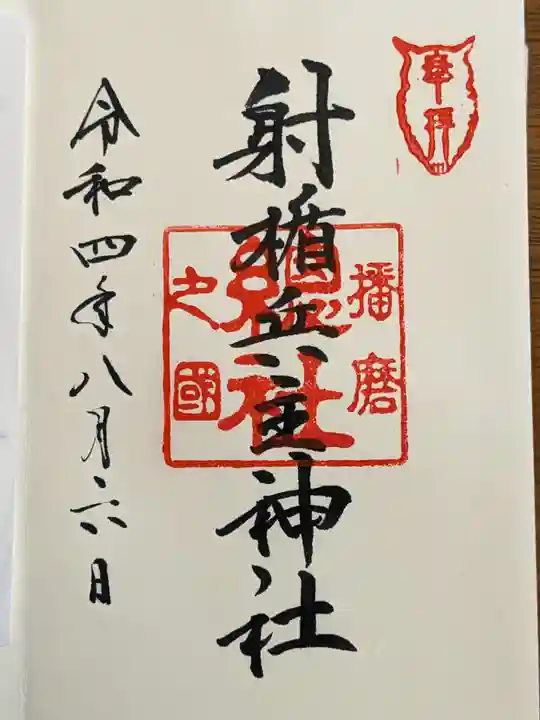 奉拝
射楯兵主神社
播磨
総社
之國
令和四年八月六日